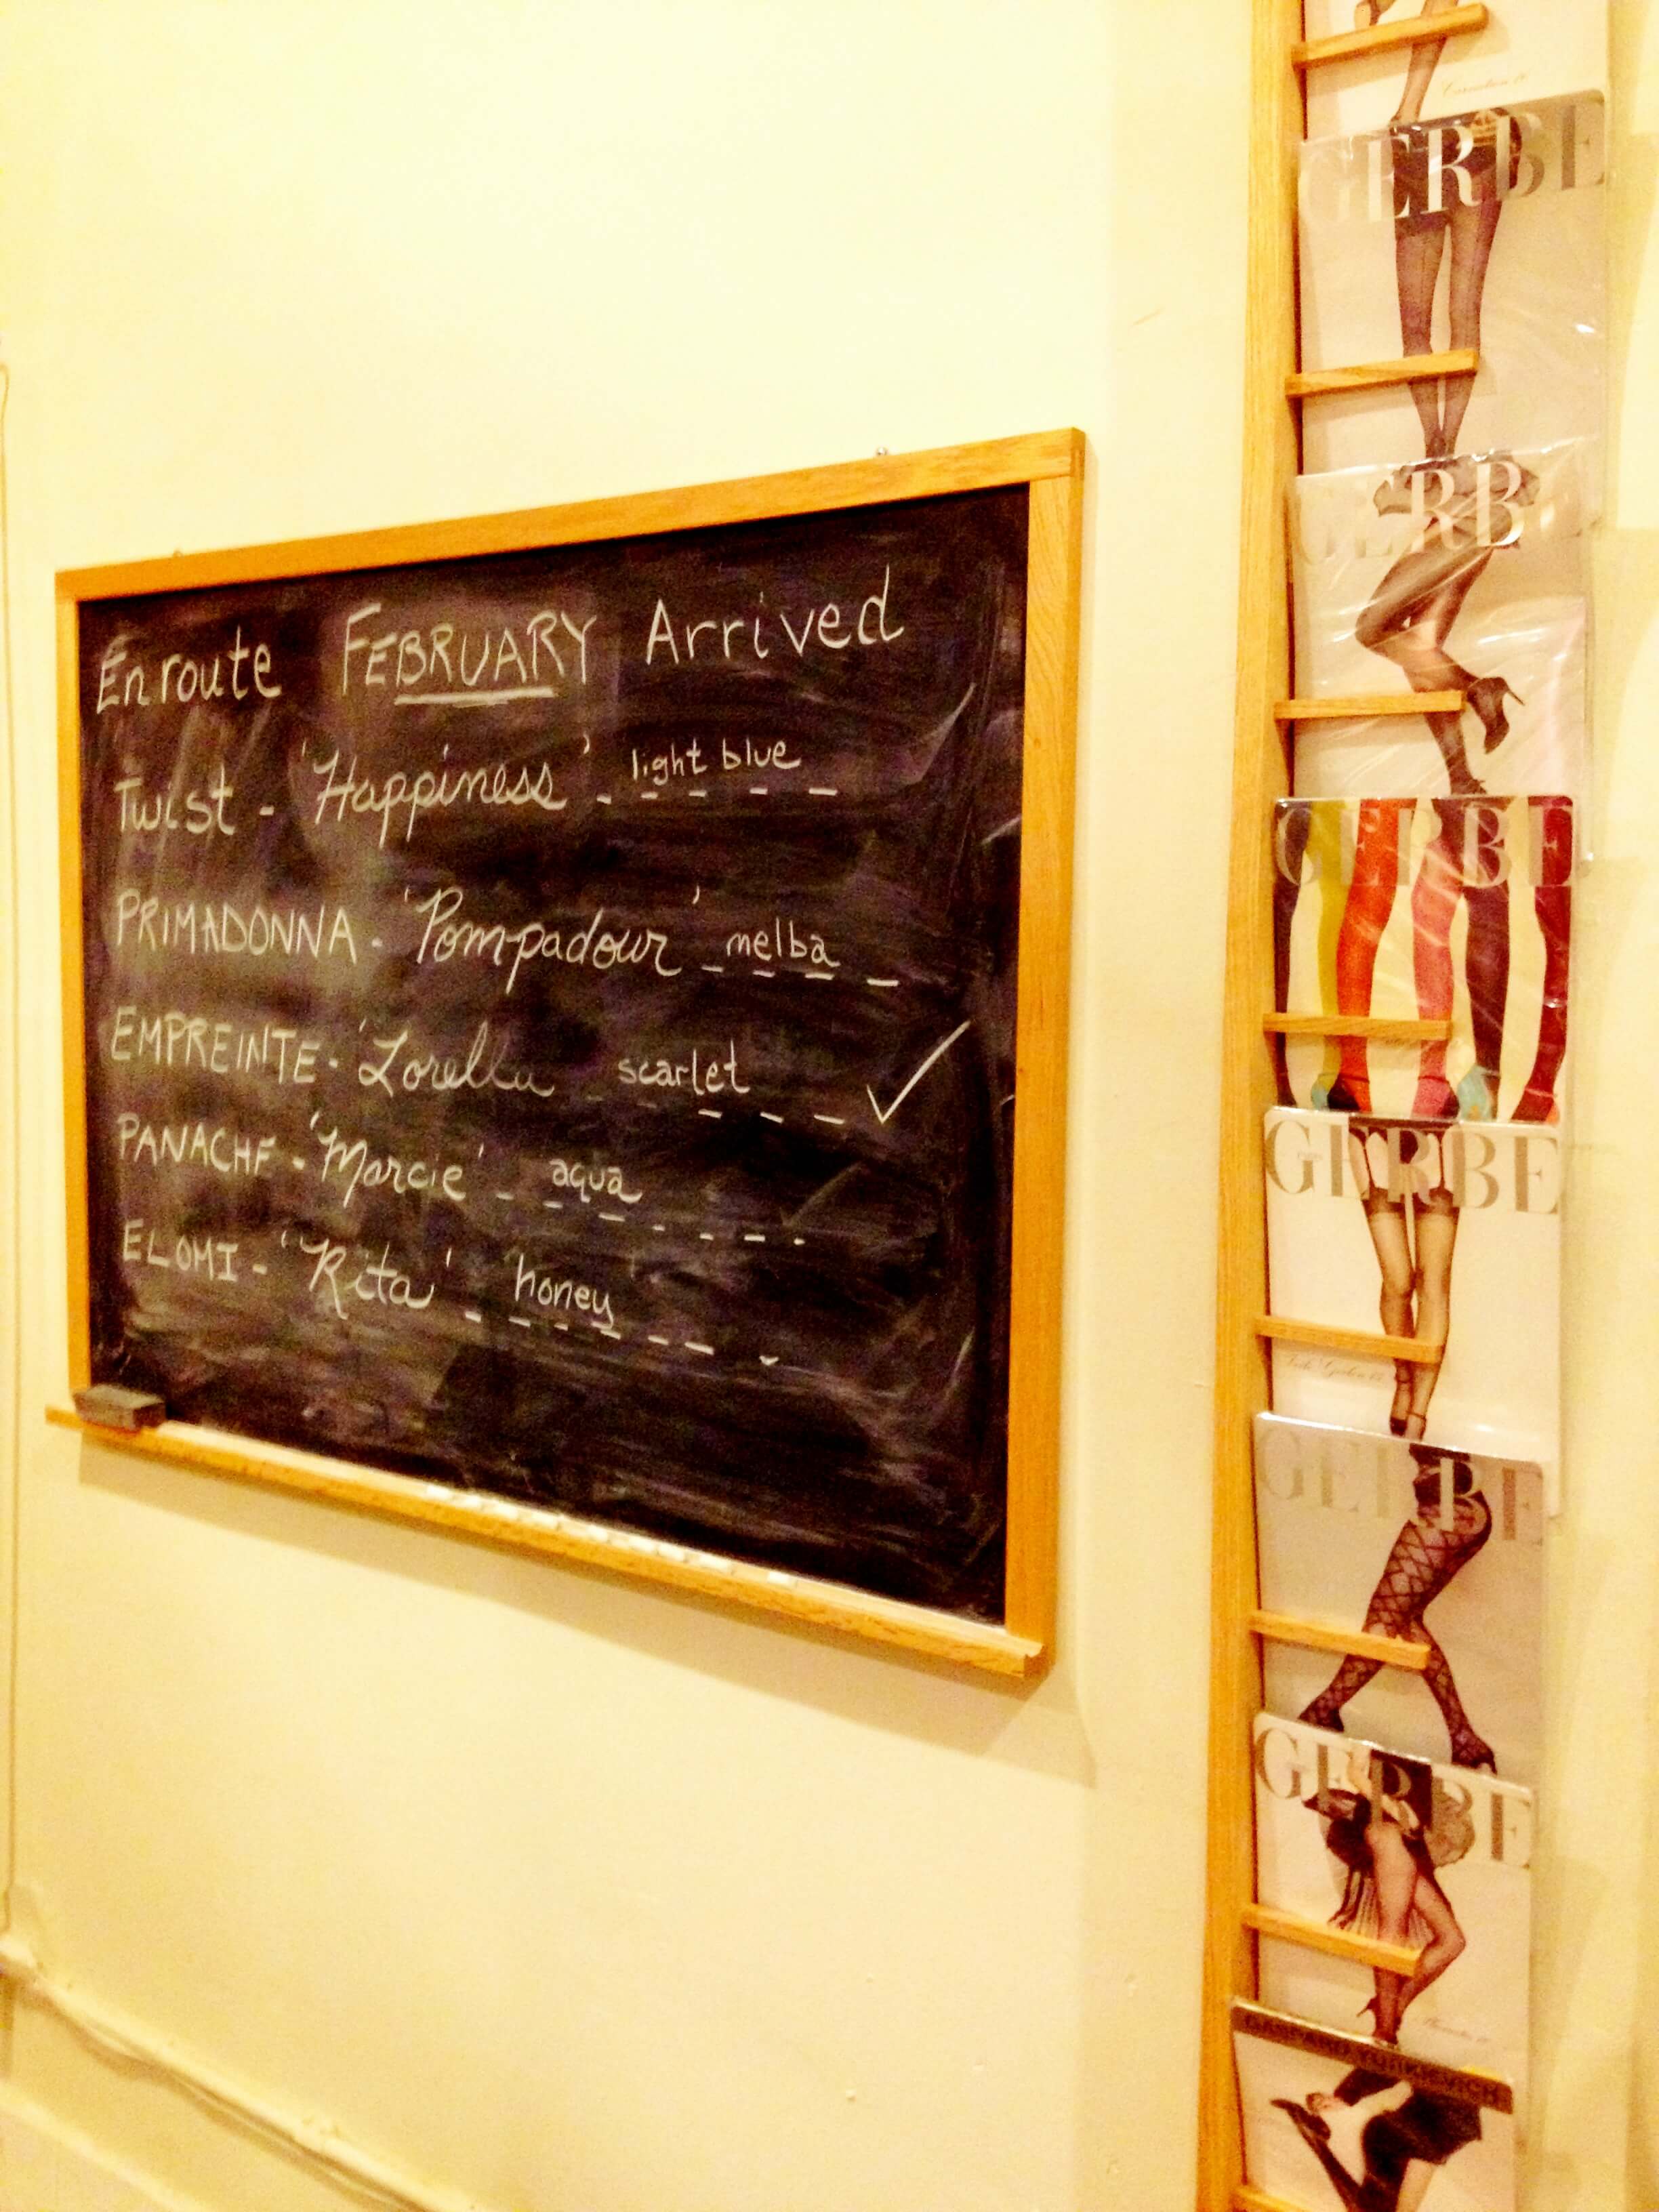 En route FEBRUARY Arrived
Twist - 'Happiness' - light blue
PRIMADONNA - 'Pompadour' melba
EMPREINTE - 'Lorella scarlet ✓
PANACHE - 'Marcie' - aqua
ELOMI - 'Rita' - honey
GERBE
GERBE
GERBE
GERBE
GERBE
GERBE